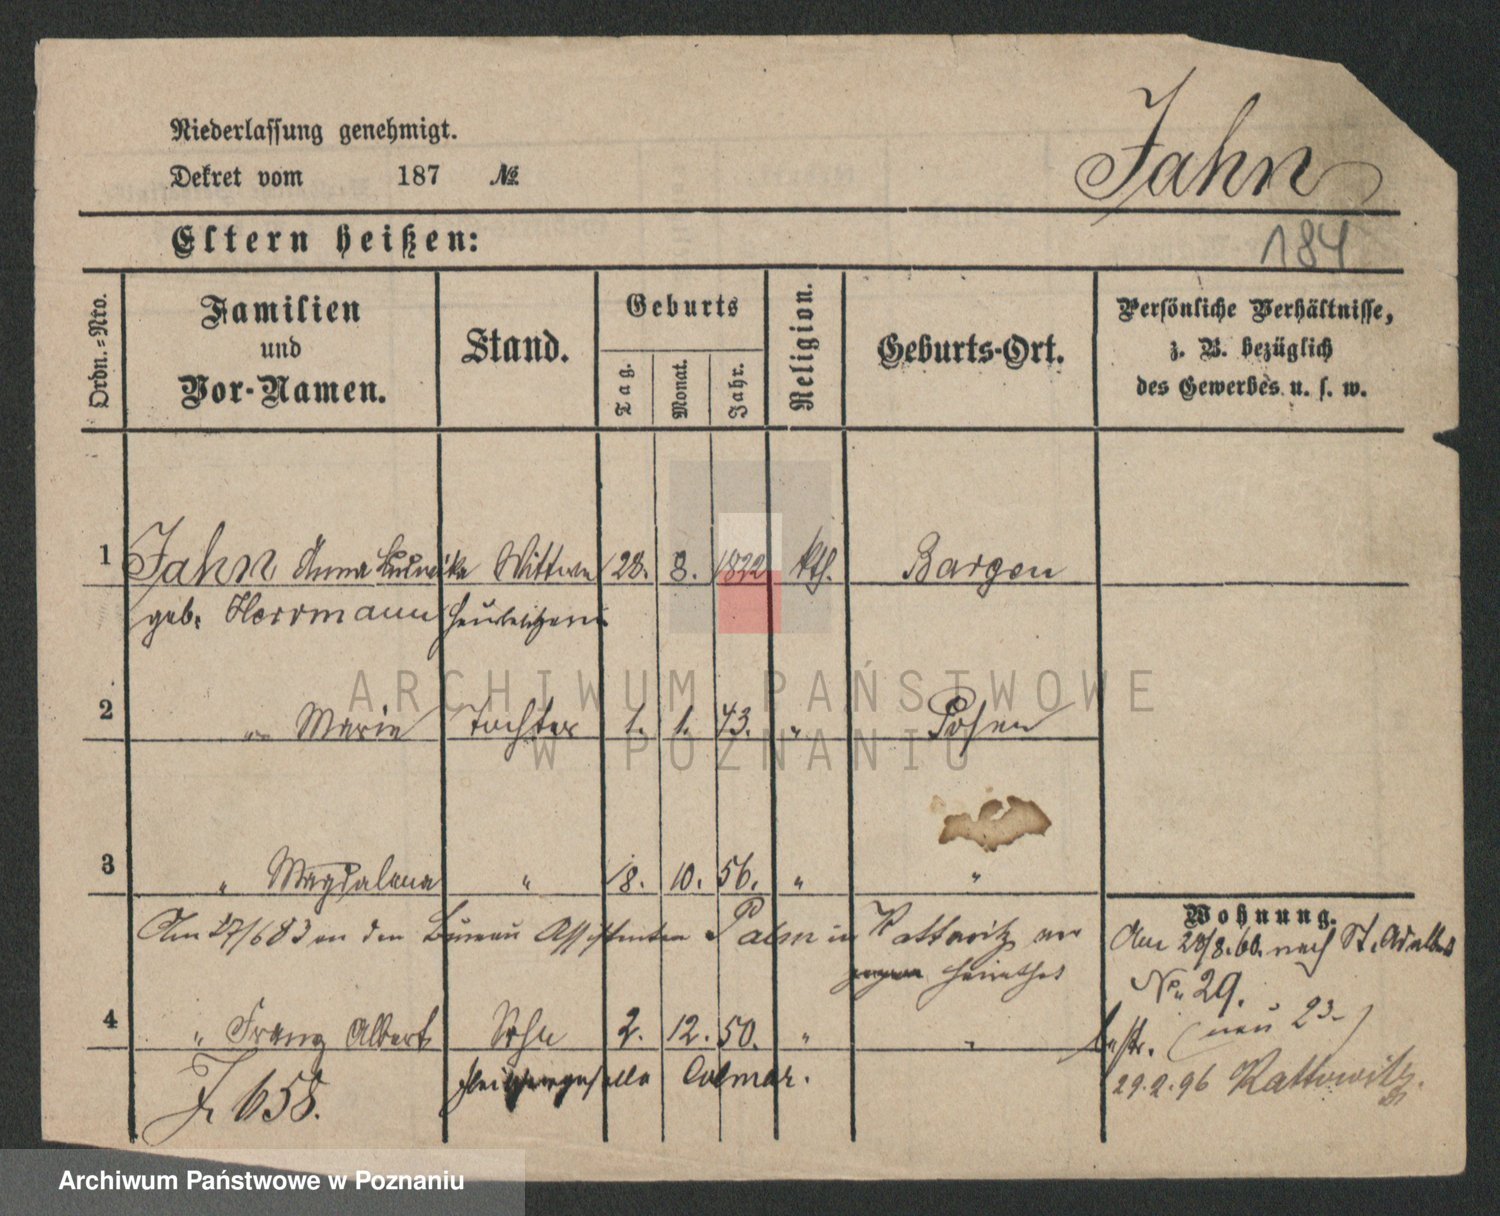 Niederlassung genehmigt.
Dekret vom 187 №
Jahn
184
Eltern heißen:
Ordn.=Nro.
Familien
und
Vor-Namen.
Stand.
Geburts
Tag.
Monat.
Jahr.
Religion.
Geburts-Ort.
Persönliche Verhältnisse,
z. B. bezüglich
des Gewerbes u. s. w.
1 Jahn Anna Ludwika Wittwe 28. 8. 1822 kth. Bargen
geb. Herrmann Hausbesitzerin
2 " Marie Tochter 1. 1. 43. " Posen
3 " Magdalena " 18. 10. 56. " "
Am 27/6 83 an den Bureau Assistenten Palm in Kattowitz ver
heirathet
Wohnung.
Am 28/8. 60. nach St. Adalbert
No. 29.
(neu 23.)
4 " Franz Albert Sohn 2. 12. 50. " "
J. 658.
Fleischergeselle Colmar.
29.2.96 Kattowitz.
ARCHIWUM PAŃSTWOWE
W POZNANIU
Archiwum Państwowe w Poznaniu